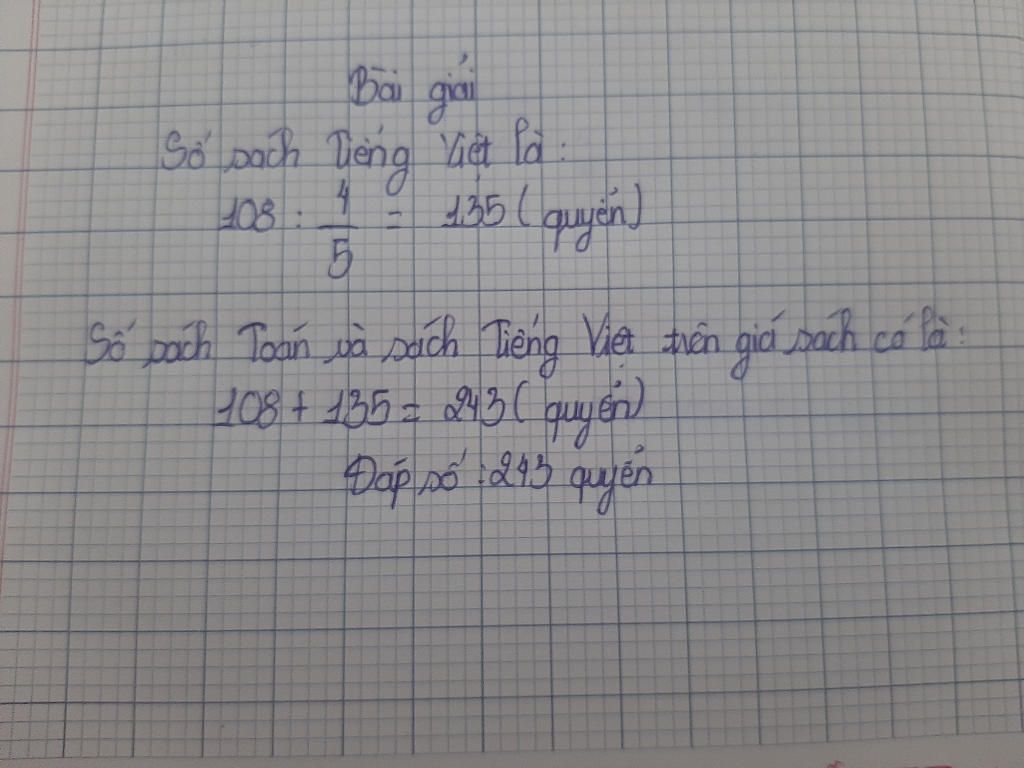 Bài giải
Số sách Tiếng Việt là:
108 : 4/5 = 135 ( quyển)
Số sách Toán và sách Tiếng Việt trên giá sách có là:
108 + 135 = 243 ( quyển)
Đáp số : 243 quyển